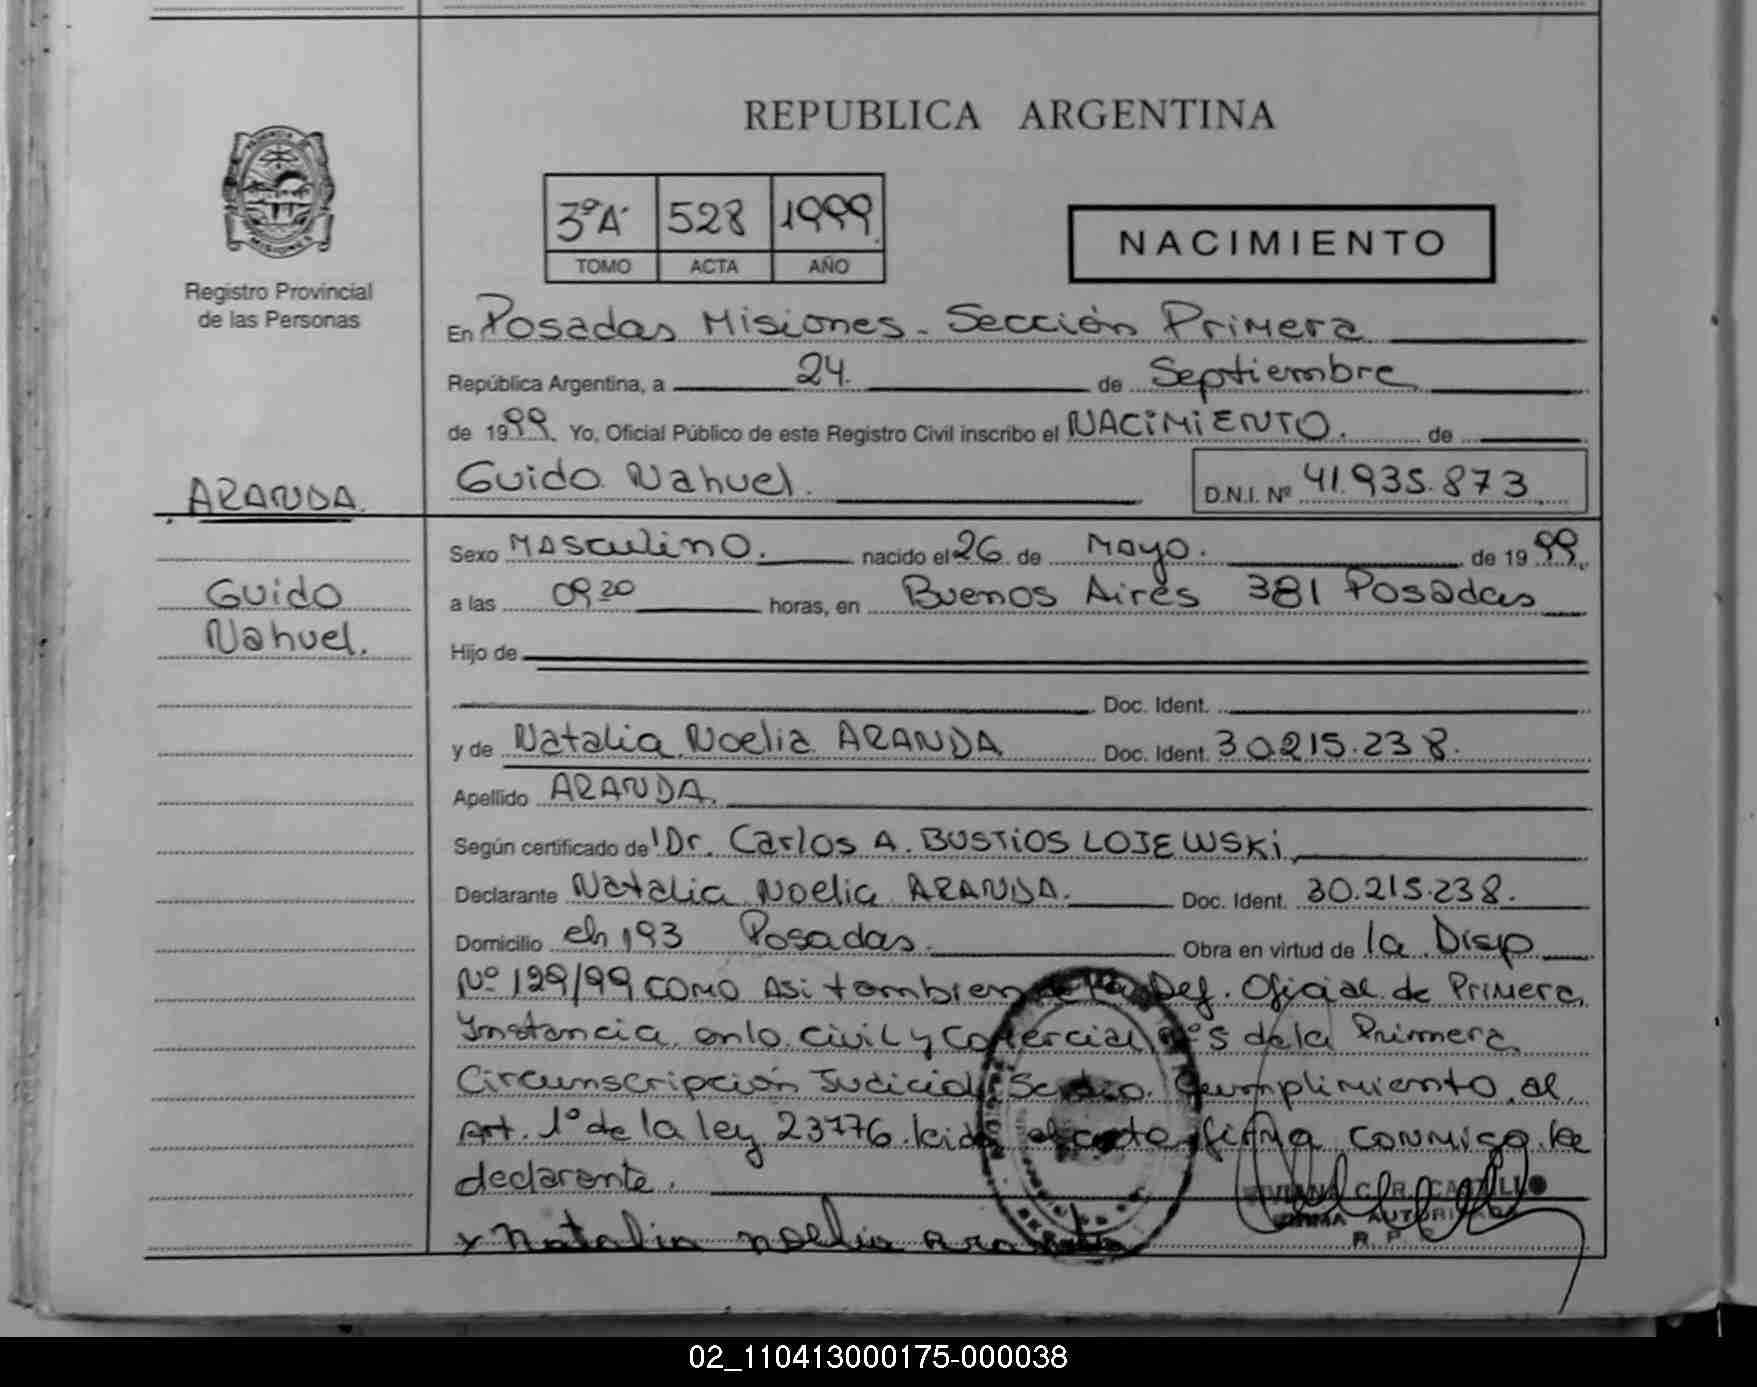 REPUBLICA ARGENTINA
MISIONES
Registro Provincial
de las Personas
3ºA 528 1999
TOMO ACTA AÑO
NACIMIENTO
En Posadas Misiones. Sección Primera
República Argentina, a 24. de Septiembre
de 1999. Yo, Oficial Público de este Registro Civil inscribo el NACIMIENTO. de
ARANDA. Guido Nahuel. D.N.I. Nº 41.935.873
Sexo Masculino. nacido el 26 de Mayo. de 1999.
Guido a las 09 20 horas, en Buenos Aires 381 Posadas
Nahuel. Hijo de
Doc. Ident.
y de Natalia Noelia ARANDA Doc. Ident. 30.215.238.
Apellido ARANDA.
Según certificado de Dr. Carlos A. BUSTIOS LOJEWSKi,
Declarante Natalia Noelia ARANDA. Doc. Ident. 30.215.238.
Domicilio ch 193 Posadas. Obra en virtud de la Disp
Nº 129/99 como Asi tambien de la Def. Oficial de Primera
Instancia en lo Civil y Comercial Nº5 de la Primera
Circunscripción Judicial. Se dio Cumplimiento al
Art. 1º de la ley 23776. leida el acta firma conmigo la
declarante.
x Natalia noelia Aranda
VIVIANA C. R. CASTILLO
FIRMA AUTORIZADA
R. P.
02_110413000175-000038